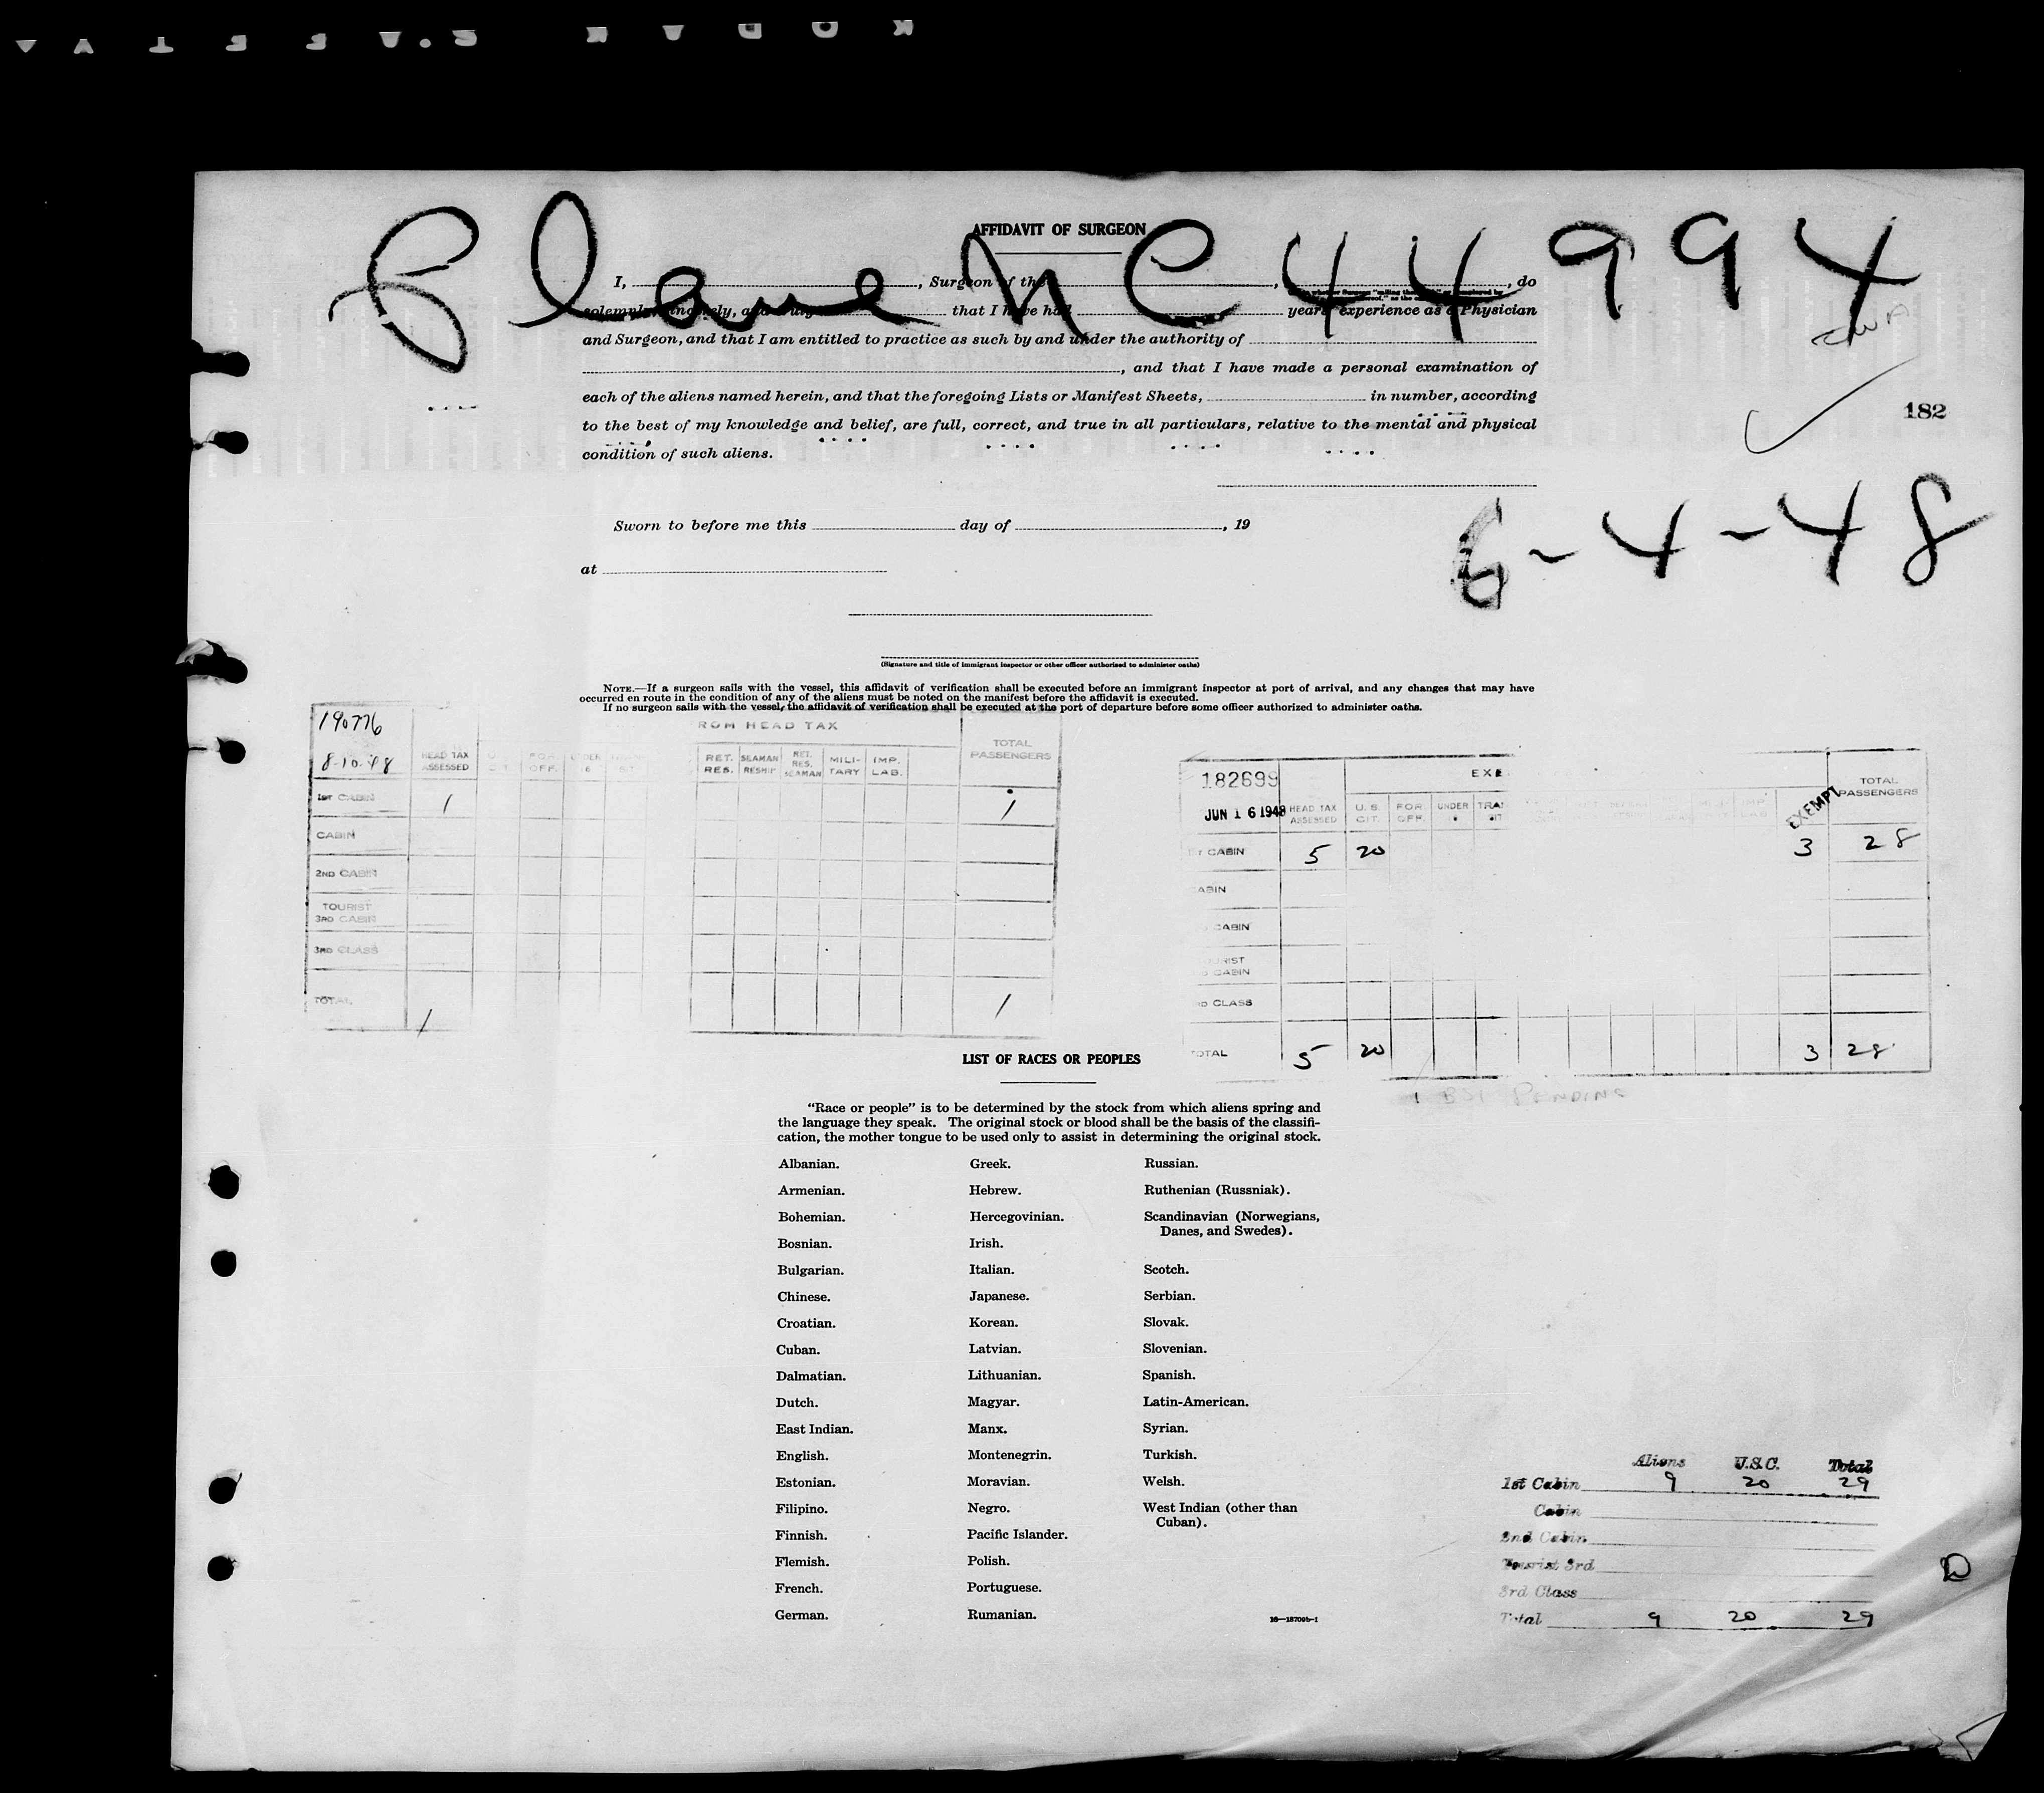 Plane NC 44994
AFFIDAVIT OF SURGEON
I, , Surgeon of the , , do
solemnly, sincerely, and truly that I have had years' experience as a Physician
and Surgeon, and that I am entitled to practice as such by and under the authority of
, and that I have made a personal examination of
each of the aliens named herein, and that the foregoing Lists or Manifest Sheets, in number, according
to the best of my knowledge and belief, are full, correct, and true in all particulars, relative to the mental and physical
condition of such aliens.
182
6-4-48
Sworn to before me this day of , 19
at
(Signature and title of immigrant inspector or other officer authorized to administer oaths)
NOTE.—If a surgeon sails with the vessel, this affidavit of verification shall be executed before an immigrant inspector at port of arrival, and any changes that may have
occurred en route in the condition of any of the aliens must be noted on the manifest before the affidavit is executed.
If no surgeon sails with the vessel, the affidavit of verification shall be executed at the port of departure before some officer authorized to administer oaths.
190776
ROM HEAD TAX
TOTAL PASSENGERS
8-10-48 HEAD TAX ASSESSED FOR. OFF. RET. RES. SEAMAN RESHIP RET. RES. SEAMAN MILI- TARY IMP. LAB.
1ST CABIN 1 1
CABIN
2ND CABIN
TOURIST
3RD CABIN
3RD CLASS
TOTAL 1 1
182699 EXE TOTAL PASSENGERS
JUN 16 1948 HEAD TAX ASSESSED U. S. CIT. FOR. OFF. UNDER TRAN EXEMPT
CABIN 5 20 3 28
CABIN
CABIN
CABIN
CLASS
TOTAL 5 20 3 28
1 BSI PENDING
LIST OF RACES OR PEOPLES
"Race or people" is to be determined by the stock from which aliens spring and
the language they speak. The original stock or blood shall be the basis of the classifi-
cation, the mother tongue to be used only to assist in determining the original stock.
Albanian.
Armenian.
Bohemian.
Bosnian.
Bulgarian.
Chinese.
Croatian.
Cuban.
Dalmatian.
Dutch.
East Indian.
English.
Estonian.
Filipino.
Finnish.
Flemish.
French.
German.
Greek.
Hebrew.
Hercegovinian.
Irish.
Italian.
Japanese.
Korean.
Latvian.
Lithuanian.
Magyar.
Manx.
Montenegrin.
Moravian.
Negro.
Pacific Islander.
Polish.
Portuguese.
Rumanian.
Russian.
Ruthenian (Russniak).
Scandinavian (Norwegians,
Danes, and Swedes).
Scotch.
Serbian.
Slovak.
Slovenian.
Spanish.
Latin-American.
Syrian.
Turkish.
Welsh.
West Indian (other than
Cuban).
16—18709b-1
Aliens U.S.C. Total
1st Cabin 9 20 29
Cabin
2nd Cabin
Tourist 3rd
3rd Class
Total 9 20 29
D